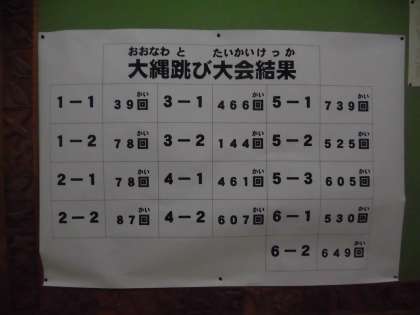 おおなわ と たいかいけっか
大縄跳び大会結果
かい かい かい
1－1 39回 3－1 466回 5－1 739回
かい かい かい
1－2 78回 3－2 144回 5－2 525回
かい かい かい
2－1 78回 4－1 461回 5－3 605回
かい かい かい
2－2 87回 4－2 607回 6－1 530回
かい
6－2 649回